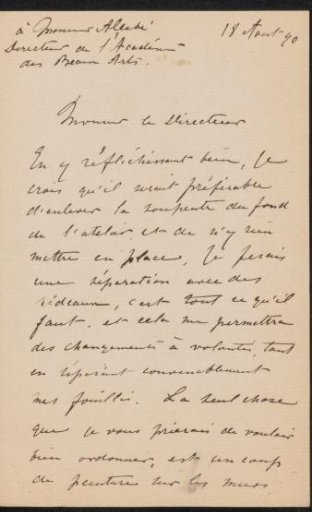 à Monsieur Allebé 18 Aout 90
Directeur de l'Académie
des Beaux Arts.
Monsieur le Directeur
En y réfléchissant bien, je
crois qu'il serait préférable
d'enlever la soupente du fond
de l'atelier et de n'y rien
mettre en place, je ferais
une séparation avec des
rideaux, c'est tout ce qu'il
faut, et cela me permettra
des changements à volonté, tout
en séparant convenablement
mes fouillis. La seul chose
que je vous prierais de vouloir
bien ordonner, est un coup
de peinture sur les murs